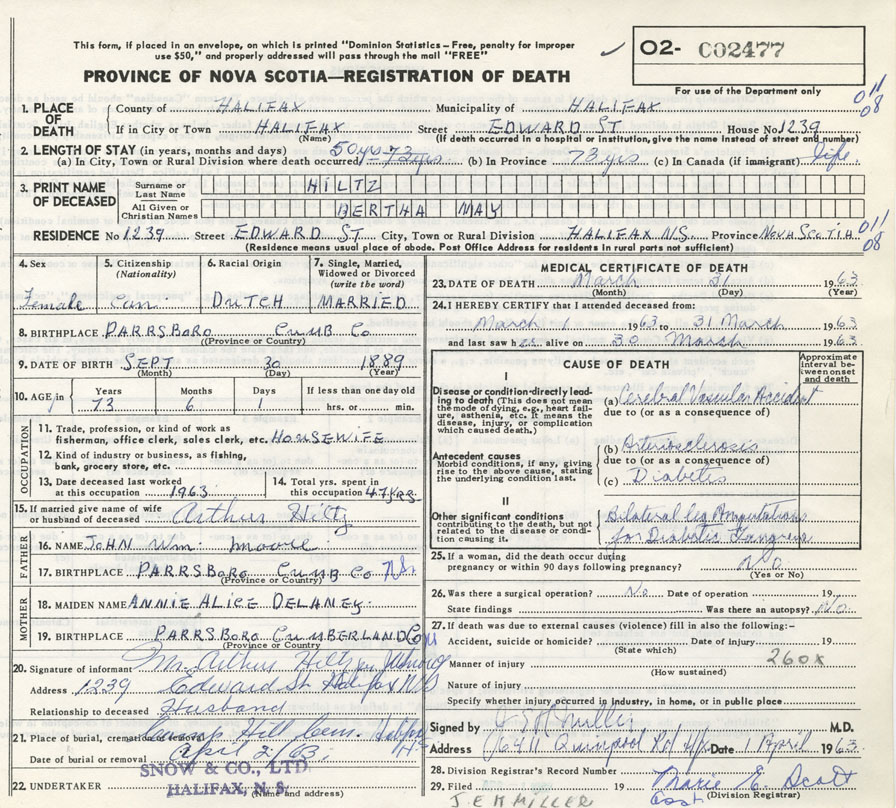 This form, if placed in an envelope, on which is printed "Dominion Statistics – Free, penalty for improper
use $50," and properly addressed will pass through the mail "FREE"
PROVINCE OF NOVA SCOTIA—REGISTRATION OF DEATH
O2- C02477
For use of the Department only
011
08
1. PLACE OF DEATH
County of HALIFAX Municipality of HALIFAX
If in City or Town HALIFAX Street EDWARD ST House No 1239
(Name) (If death occurred in a hospital or institution, give the name instead of street and number)
2. LENGTH OF STAY (in years, months and days)
(a) In City, Town or Rural Division where death occurred 50 yrs 73 yrs (b) In Province 73 yrs (c) In Canada (if immigrant) life
3. PRINT NAME OF DECEASED
Surname or Last Name HILTZ
All Given or Christian Names BERTHA MAY
RESIDENCE No 1239 Street EDWARD ST City, Town or Rural Division HALIFAX N.S. Province NOVA SCOTIA
011
08
(Residence means usual place of abode. Post Office Address for residents in rural parts not sufficient)
4. Sex Female
5. Citizenship (Nationality) Can
6. Racial Origin DUTCH
7. Single, Married, Widowed or Divorced (write the word) MARRIED
8. BIRTHPLACE PARRSBORO CUMB Co
(Province or Country)
9. DATE OF BIRTH SEPT 30 1889
(Month) (Day) (Year)
10. AGE in Years 73 Months 6 Days 1 If less than one day old hrs. or min.
OCCUPATION
11. Trade, profession, or kind of work as
fisherman, office clerk, sales clerk, etc. HOUSEWIFE
12. Kind of industry or business, as fishing,
bank, grocery store, etc.
13. Date deceased last worked
at this occupation 1963
14. Total yrs. spent in
this occupation 47 YRS
15. If married give name of wife
or husband of deceased Arthur Hiltz
FATHER
16. NAME JOHN Wm. Moore
17. BIRTHPLACE PARRSBORO CUMB Co N.S.
(Province or Country)
MOTHER
18. MAIDEN NAME ANNIE ALICE DELANEY
19. BIRTHPLACE PARRSBORO CUMBERLAND Co
(Province or Country)
20. Signature of informant Mr. Arthur Hiltz
Address 1239 Edward St Halifax N.S
Relationship to deceased Husband
21. Place of burial, cremation or removal Camp Hill Cem. Halifax
Date of burial or removal April 2/63
22. UNDERTAKER SNOW & CO., LTD.
HALIFAX, N. S.
(Name and address)
MEDICAL CERTIFICATE OF DEATH
23. DATE OF DEATH March 31 1963
(Month) (Day) (Year)
24. I HEREBY CERTIFY that I attended deceased from:
March 1 1963 to 31 March 1963
and last saw her alive on 30 March 1963
CAUSE OF DEATH
Approximate interval between onset and death
I
Disease or condition directly leading to death (This does not mean the mode of dying, e.g., heart failure, asthenia, etc. It means the disease, injury, or complication which caused death.)
(a) Cerebral Vascular Accident
due to (or as a consequence of)
Antecedent causes
Morbid conditions, if any, giving rise to the above cause, stating the underlying condition last.
(b) Arteriosclerosis
due to (or as a consequence of)
(c) Diabetes
II
Other significant conditions
contributing to the death, but not related to the disease or condition causing it.
Bilateral leg Amputations
for Diabetic Gangrene
25. If a woman, did the death occur during
pregnancy or within 90 days following pregnancy? No
(Yes or No)
26. Was there a surgical operation? No Date of operation 19
State findings Was there an autopsy? No
27. If death was due to external causes (violence) fill in also the following:-
Accident, suicide or homicide? Date of injury 19
(State which)
Manner of injury 260X
(How sustained)
Nature of injury
Specify whether injury occurred in industry, in home, or in public place
Signed by J E H Miller M.D.
Address 6411 Quinpool Rd Hfx Date 1 April 1963
28. Division Registrar's Record Number
29. Filed 19 Marie E. Scott
J.E H MILLER Asst (Division Registrar)